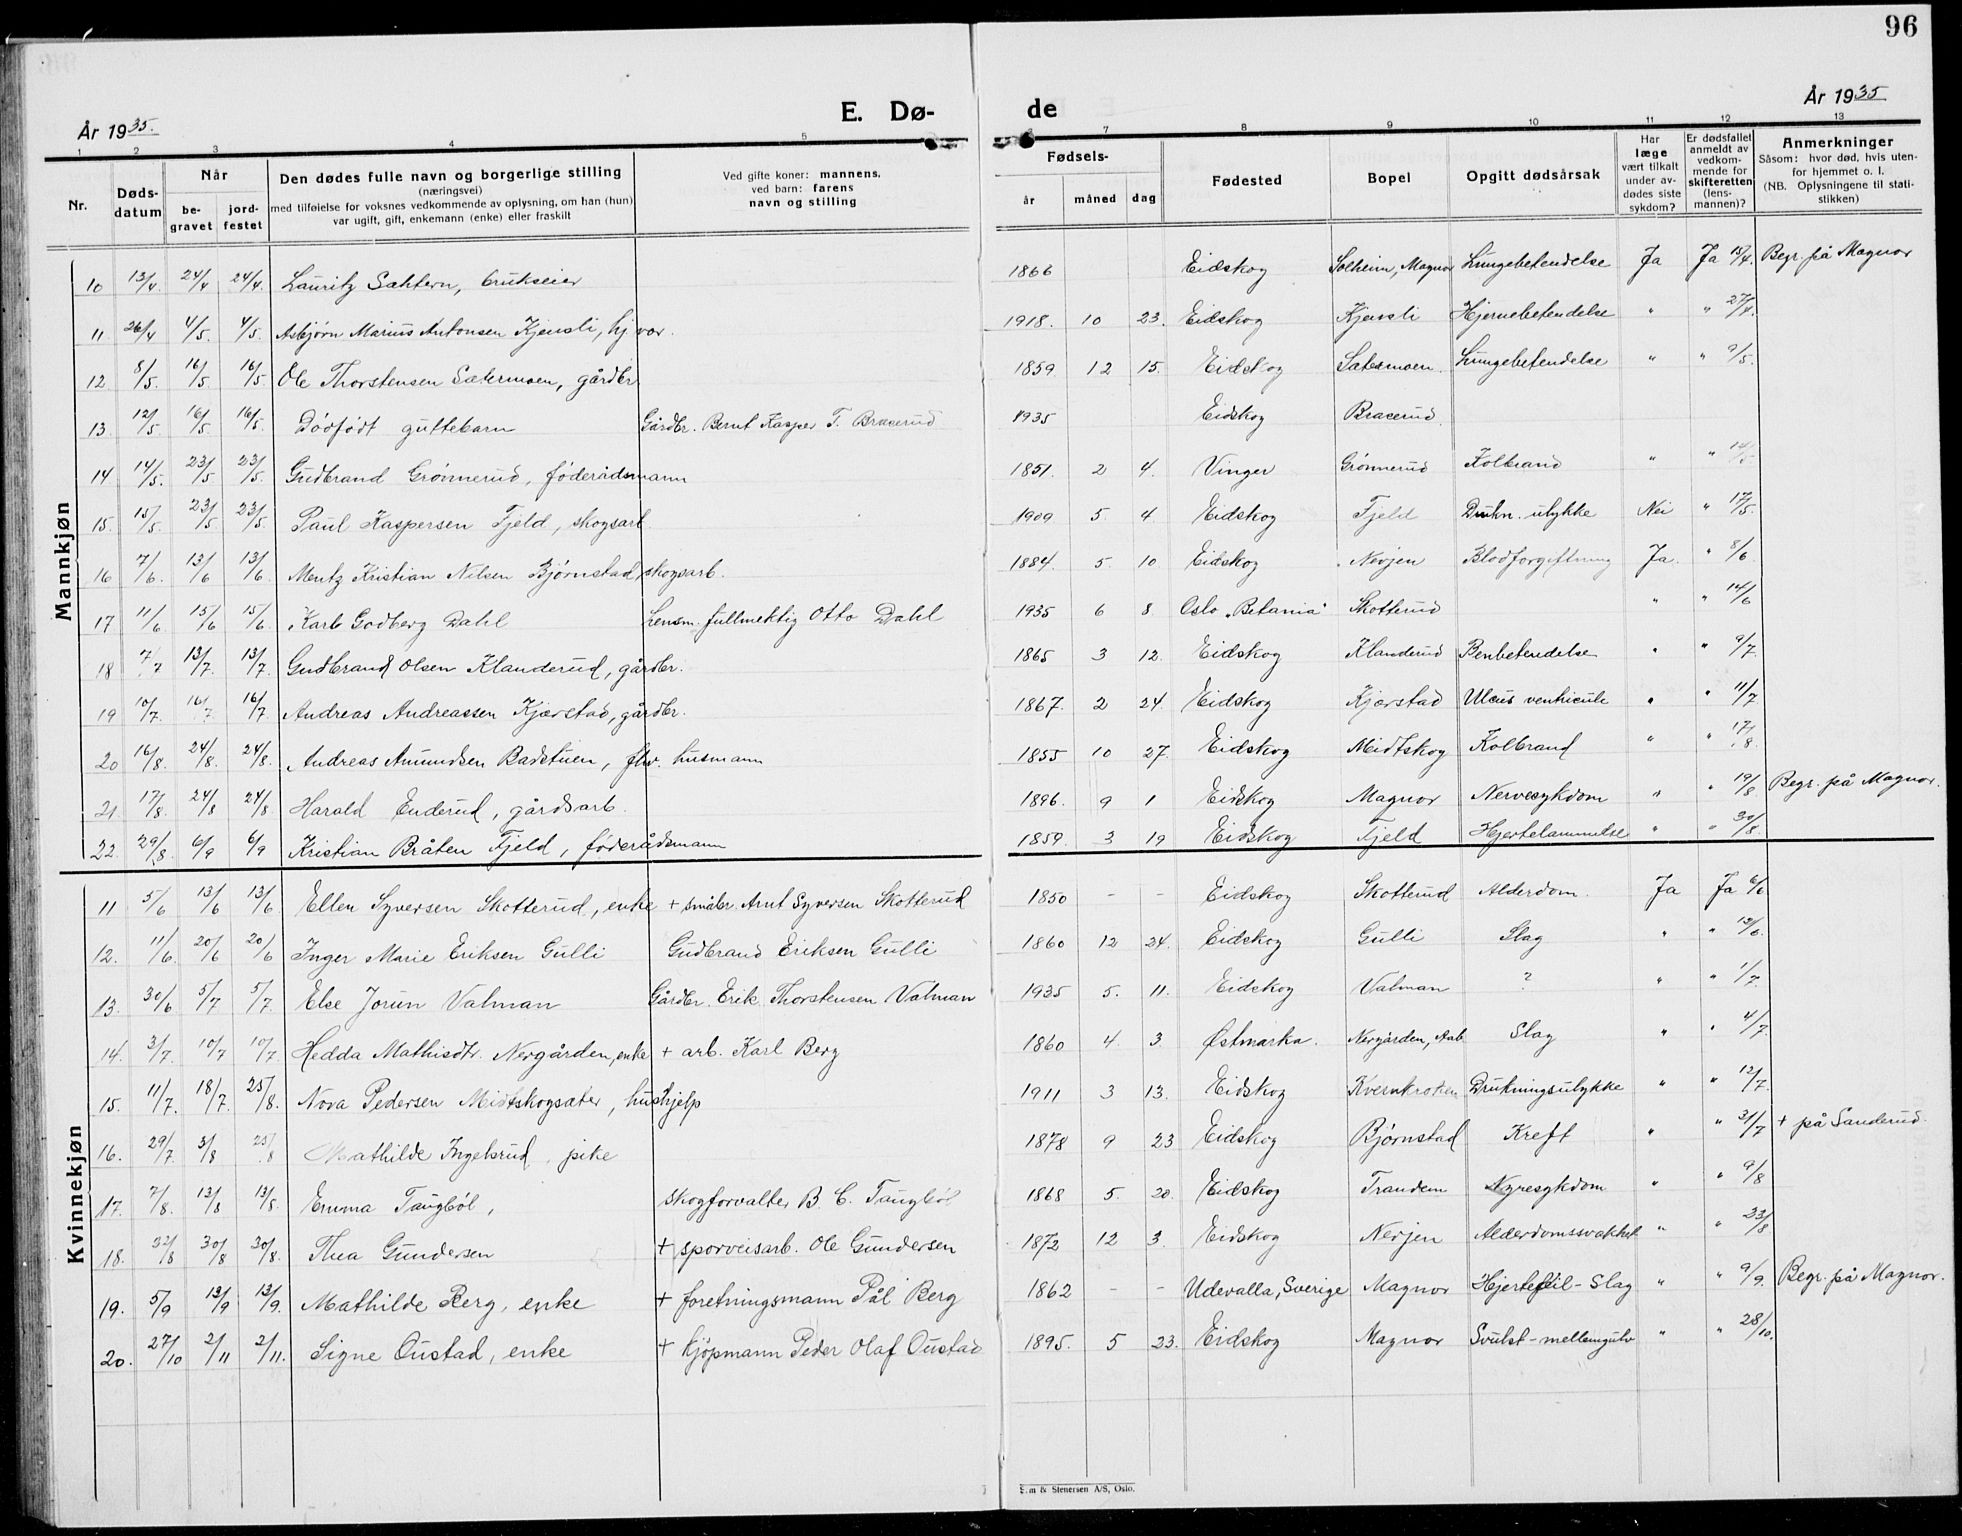 96
E. Dø-
de
År 1935.
År 1935
1 2 3 4 5 6 7 8 9 10 11 12 13
Nr.
Døds-
datum
Når
be-
gravet
jord-
festet
Den dødes fulle navn og borgerlige stilling
(næringsvei)
med tilføielse for voksnes vedkommende av oplysning, om han (hun)
var ugift, gift, enkemann (enke) eller fraskilt
Ved gifte koner: mannens,
ved barn: farens
navn og stilling
Fødsels-
år
måned
dag
Fødested
Bopel
Opgitt dødsårsak
Har
læge
vært tilkalt
under av-
dødes siste
sykdom?
Er dødsfallet
anmeldt av
vedkom-
mende for
skifteretten
(lens-
mannen)?
Anmerkninger
Såsom: hvor død, hvis uten-
for hjemmet o. l.
(NB. Oplysningene til stati-
stikken)
Mannkjøn
10 13/4 24/4 24/4. Lauritz Sahtern, brukseier 1866 Eidskog Solheim, Magnor Lungebetendelse Ja Ja 15/4. Begr. på Magnor
11 26/4 4/5. 4/5. Asbjørn Marius Antonsen Kjensli, hj.vær. 1918. 10 23. Eidskog Kjensli Hjernebetendelse " " 27/4.
12 8/5. 16/5. 16/5. Ole Thorstensen Sætermoen, gårdbr 1859 12 15. Eidskog Sætermoen. Lungebetendelse " " 9/5.
13 12/5. 16/5. 16/5. Dødfødt guttebarn Gårdbr. Bernt Kasper T. Bracerud 1935 Eidskog Bracerud
14 14/5. 23/5 23/5. Gudbrand Grønnerud, føderådsmann 1851. 2 4. Vinger Grønnerud Kolbrand " " 14/5
15. 15/5. 23/5 23/5 Paul Kaspersen Fjeld, skogsarb. 1909 5 4 Eidskog Fjeld Drukn. ulykke Nei " 17/5.
16 7/6. 13/6 13/6 Mentz Kristian Nilsen Bjørnstad, skogsarb. 1884. 5. 10 Eidskog Nerjen Blodforgiftning Ja. " 8/6
17 11/6 15/6 15/6. Karl Godberg Dahl Lensm. fullmektig Otto Dahl 1935 6 8 Oslo „Betania" Skotterud " " 14/6
18 7/7 13/7 13/7. Gudbrand Olsen Klanderud, gårdbr. 1865 3 12. Eidskog Klanderud Benbetendelse " " 9/7.
19 10/7. 16/7 16/7 Andreas Andreassen Kjærstad, gårdbr. 1867. 2 24. Eidskog Kjærstad Ulcus ventricule " " 11/7
20 16/8. 24/8. 24/8. Andreas Amundsen Badstuen, fhv. husmann 1855 10 27. Eidskog Midtskog Kolbrand " " 17/8.
21 17/8. 24/8 24/8 Harald Enderud, gårdsarb. 1896. 9 1 Eidskog Magnor Nervesykdom " " 19/8 Begr. på Magnor.
22. 29/8. 6/9 6/9 Kristian Bråten Fjeld, føderådsmann 1859. 3 19 Eidskog Fjeld Hjertelammelse " " 30/8.
Kvinnekjøn
11 5/6 13/6 13/6. Ellen Syversen Skotterud, enke + småbr. Arnt Syversen Skotterud 1850 - - Eidskog Skotterud Alderdom. Ja Ja 6/6
12. 11/6. 20/6 20/6 Inger Marie Eriksen Gulli Gudbrand Eriksen Gulli 1860 12 24. Eidskog Gulli Slag " " 12/6.
13. 30/6 5/7 5/7. Else Jorun Valman Gårdbr. Erik Thorstensen Valman 1935 5. 11. Eidskog Valman ? " " 1/7.
14. 3/7. 10/7 10/7. Hedda Mathisdtr. Nergården, enke + arb. Karl Berg 1860 4. 3. Østmarka. Nergården, Aab. Slag " " 4/7.
15. 11/7. 18/7. 25/8. Nora Pedersen Midtskogsæter, hushjelp 1911 3 13. Eidskog Kvernkroken Drukningsulykke " " 12/7.
16. 29/7. 3/8 25/8 Mathilde Ingelsrud, pike 1878 9 23 Eidskog Bjørnstad Kreft " " 31/7 + på Sanderud.
17. 7/8. 13/8 13/8. Emma Taugbøl, skogforvalter B. C. Taugbøl 1868 5. 20. Eidskog Trandem Nyresykdom " " 9/8
18. 22/8 30/8 30/8. Thea Gundersen + sporveisarb. Ole Gundersen 1872 12 3. Eidskog Nerjen Alderdomssvakhet " " 23/8
19. 5/9 13/9 13/9. Mathilde Berg, enke + forretningsmann Pål Berg 1862 - - Udevalla, Sverige Magnor Hjertefeil - Slag " " 9/9. Begr. på Magnor.
20. 27/10 2/11 2/11. Signe Oustad, enke + kjøpmann Peder Olaf Oustad 1895. 5 23. Eidskog Magnor Svulst - mellemgulv " " 28/10.
& Stenersen A/S, Oslo.